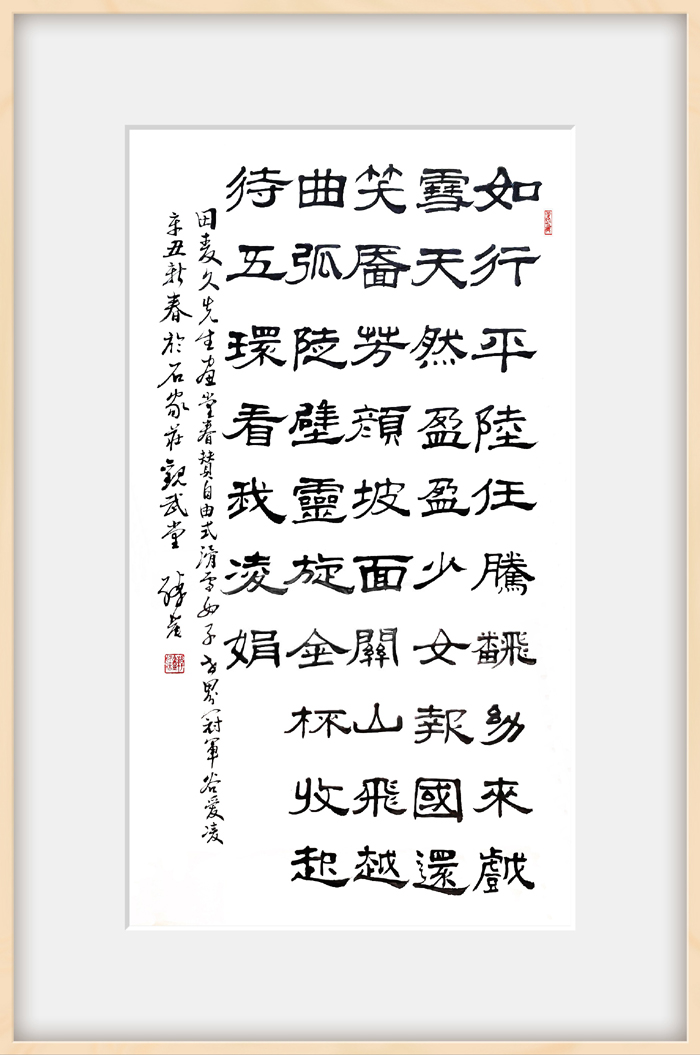 如行平陸任騰飜幼來戲
雪天然盈盈少女報國還
笑靨芳顏坡面關山飛越
曲弧陡壁靈旋金杯收起
待五環看我凌娟
田麦久先生画堂春赞自由式滑雪女子世界冠軍谷愛凌
辛丑新春於石家莊觀武堂